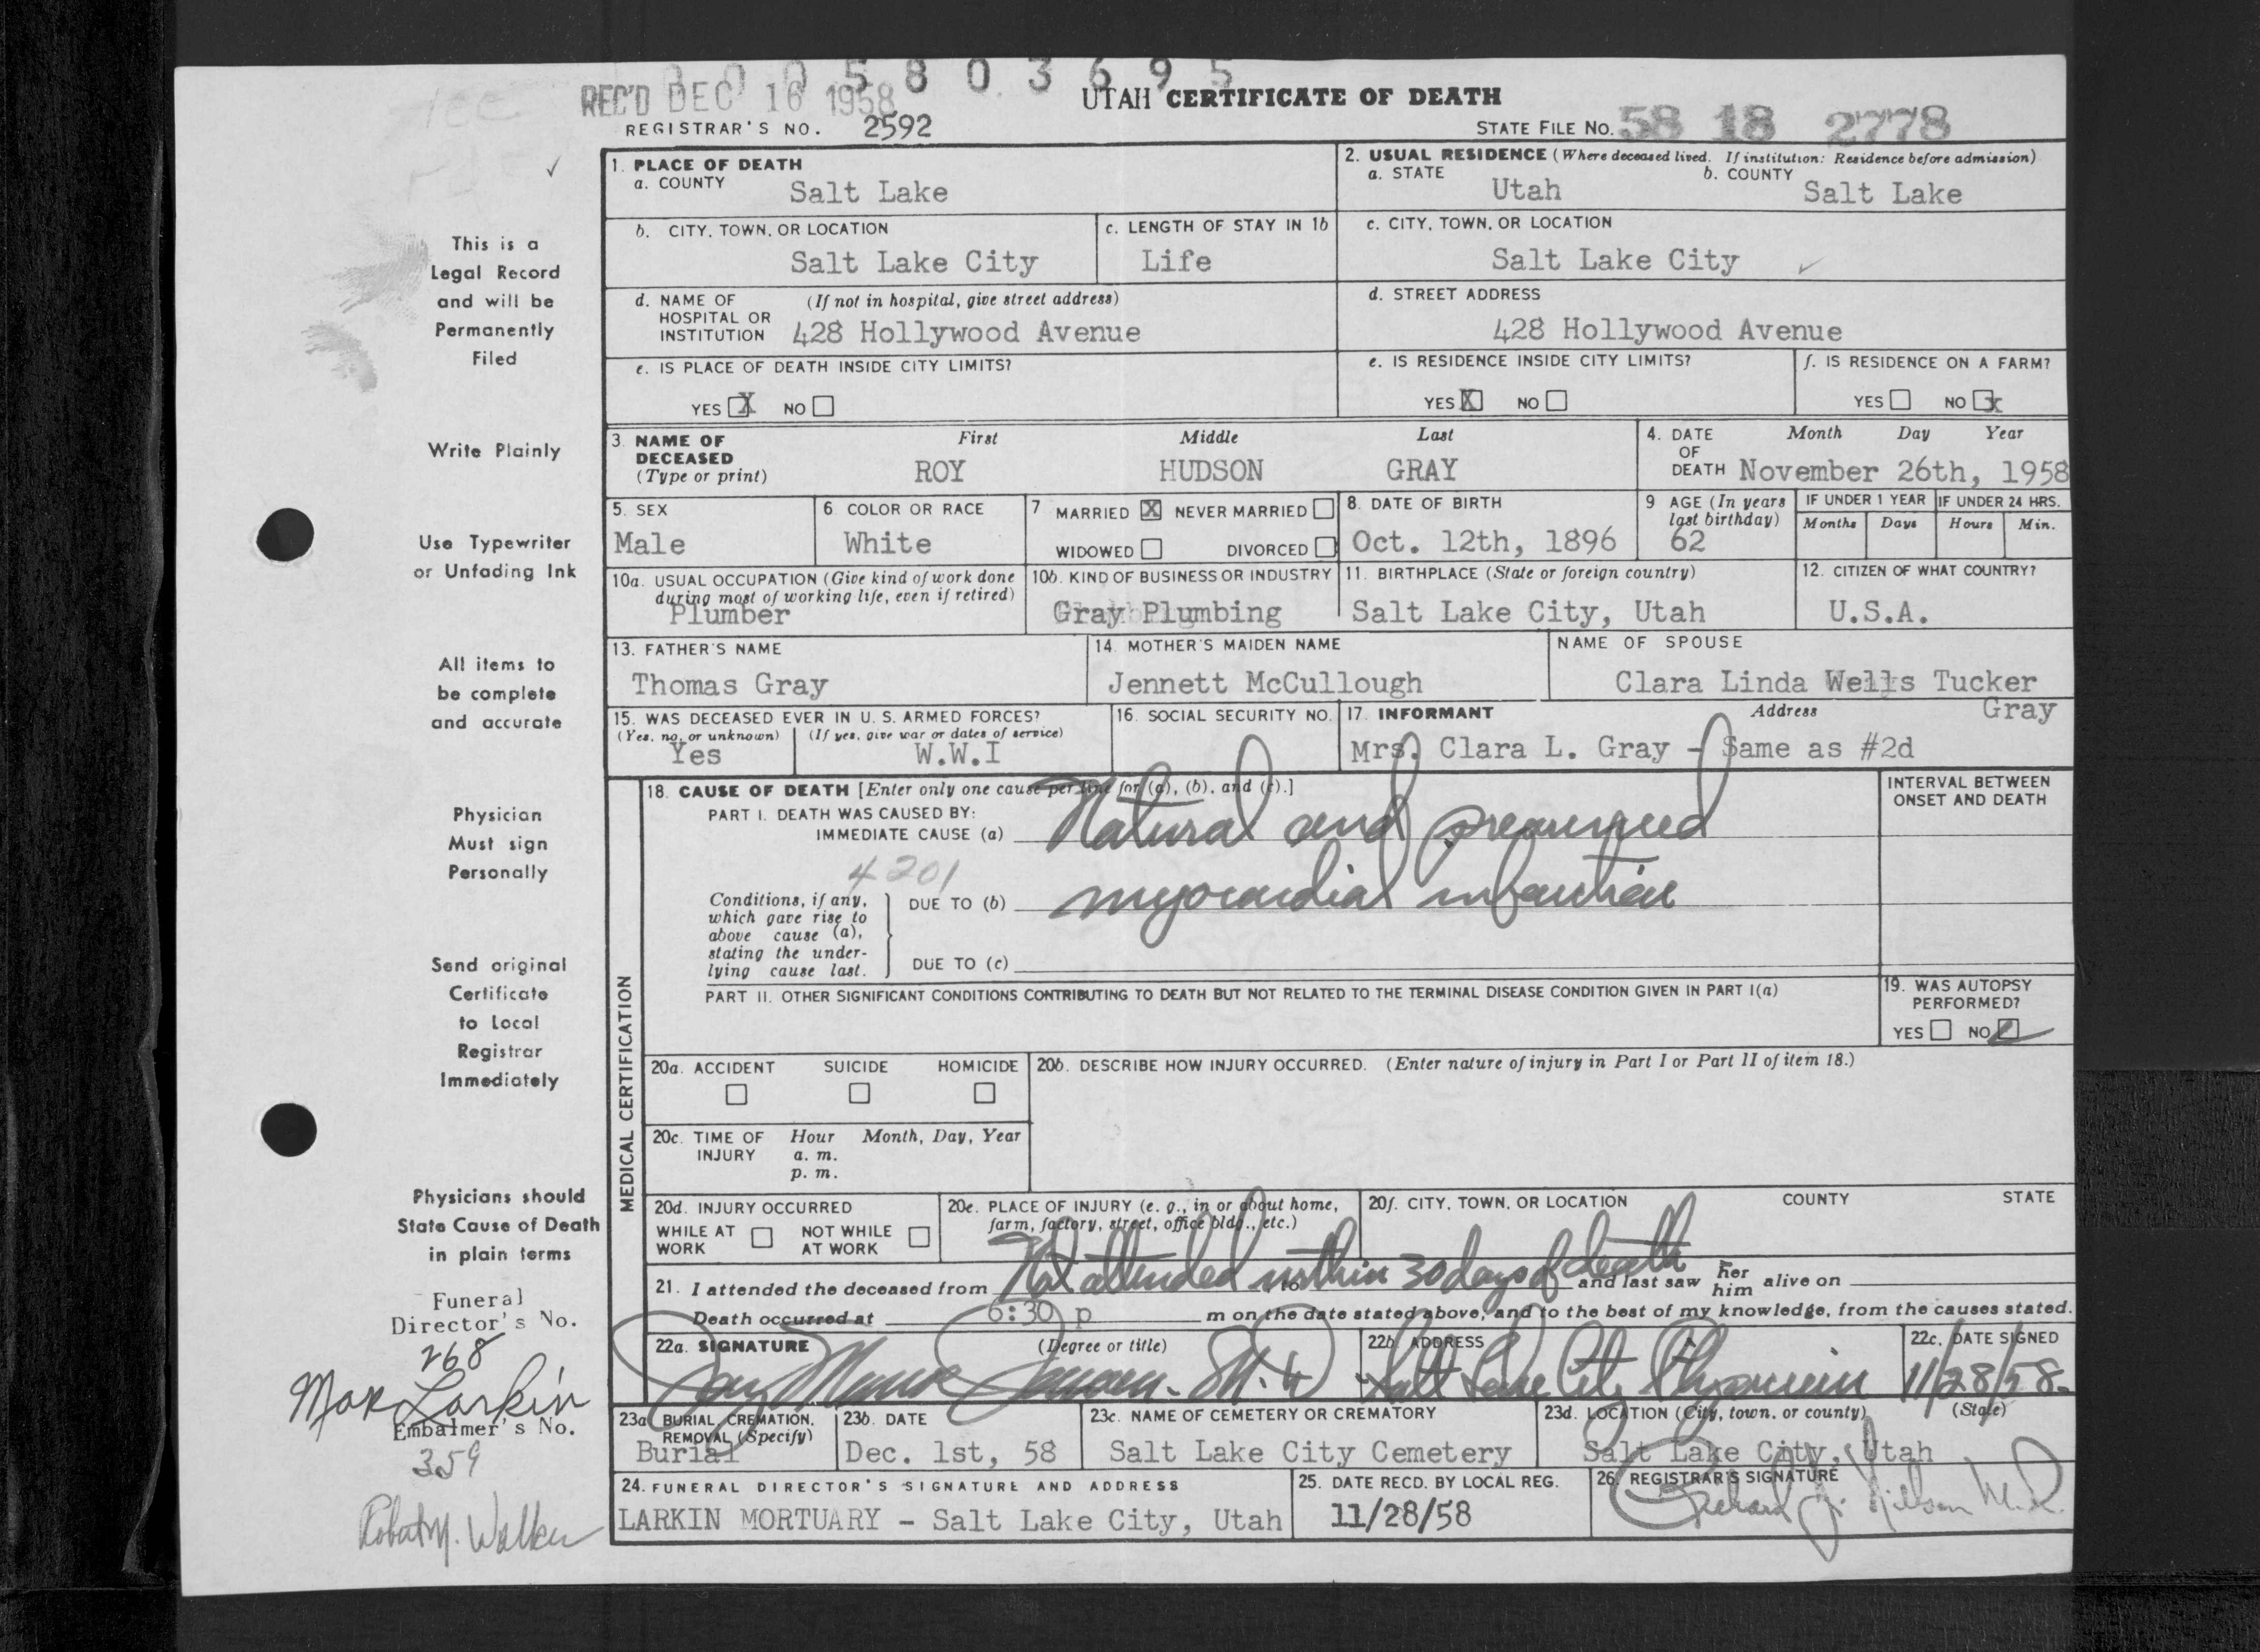 0005803695
REC'D DEC 16 1958
UTAH CERTIFICATE OF DEATH
REGISTRAR'S NO. 2592
STATE FILE NO. 58 18 2778
This is a
Legal Record
and will be
Permanently
Filed
Write Plainly
Use Typewriter
or Unfading Ink
All items to
be complete
and accurate
Physician
Must sign
Personally
Send original
Certificate
to Local
Registrar
Immediately
Physicians should
State Cause of Death
in plain terms
Funeral
Director's No.
268
Max Larkin
Embalmer's No.
359
Robert M. Walker
1. PLACE OF DEATH
a. COUNTY Salt Lake
2. USUAL RESIDENCE (Where deceased lived. If institution: Residence before admission)
a. STATE Utah b. COUNTY Salt Lake
b. CITY, TOWN, OR LOCATION
Salt Lake City
c. LENGTH OF STAY IN 1b
Life
c. CITY, TOWN, OR LOCATION
Salt Lake City
d. NAME OF (If not in hospital, give street address)
HOSPITAL OR
INSTITUTION 428 Hollywood Avenue
d. STREET ADDRESS
428 Hollywood Avenue
e. IS PLACE OF DEATH INSIDE CITY LIMITS?
YES X NO
e. IS RESIDENCE INSIDE CITY LIMITS?
YES X NO
f. IS RESIDENCE ON A FARM?
YES NO X
3. NAME OF First Middle Last
DECEASED
(Type or print) ROY HUDSON GRAY
4. DATE Month Day Year
OF
DEATH November 26th, 1958
5. SEX
Male
6. COLOR OR RACE
White
7 MARRIED X NEVER MARRIED
WIDOWED DIVORCED
8. DATE OF BIRTH
Oct. 12th, 1896
9 AGE (In years
last birthday)
62
IF UNDER 1 YEAR IF UNDER 24 HRS.
Months Days Hours Min.
10a. USUAL OCCUPATION (Give kind of work done
during most of working life, even if retired)
Plumber
10b. KIND OF BUSINESS OR INDUSTRY
Gray Plumbing
11. BIRTHPLACE (State or foreign country)
Salt Lake City, Utah
12. CITIZEN OF WHAT COUNTRY?
U.S.A.
13. FATHER'S NAME
Thomas Gray
14. MOTHER'S MAIDEN NAME
Jennett McCullough
NAME OF SPOUSE
Clara Linda Wells Tucker
Gray
15. WAS DECEASED EVER IN U. S. ARMED FORCES?
(Yes, no, or unknown) (If yes, give war or dates of service)
Yes W.W.I
16. SOCIAL SECURITY NO.
17. INFORMANT Address
Mrs. Clara L. Gray - Same as #2d
MEDICAL CERTIFICATION
18. CAUSE OF DEATH [Enter only one cause per line for (a), (b), and (c).]
INTERVAL BETWEEN
ONSET AND DEATH
PART I. DEATH WAS CAUSED BY:
IMMEDIATE CAUSE (a) Natural and presumed
4201
Conditions, if any,
which gave rise to
above cause (a),
stating the under-
lying cause last.
DUE TO (b) myocardial infarction
DUE TO (c)
PART II. OTHER SIGNIFICANT CONDITIONS CONTRIBUTING TO DEATH BUT NOT RELATED TO THE TERMINAL DISEASE CONDITION GIVEN IN PART I(a)
19. WAS AUTOPSY
PERFORMED?
YES NO
20a. ACCIDENT SUICIDE HOMICIDE
20b. DESCRIBE HOW INJURY OCCURRED. (Enter nature of injury in Part I or Part II of item 18.)
20c. TIME OF Hour Month, Day, Year
INJURY a. m.
p. m.
20d. INJURY OCCURRED
WHILE AT NOT WHILE
WORK AT WORK
20e. PLACE OF INJURY (e. g., in or about home,
farm, factory, street, office bldg., etc.)
20f. CITY, TOWN, OR LOCATION COUNTY STATE
21. I attended the deceased from Not attended within 30 days of death to and last saw her him alive on
Death occurred at 6:30 p m on the date stated above, and to the best of my knowledge, from the causes stated.
22a. SIGNATURE (Degree or title)
M.D.
22b. ADDRESS
Salt Lake City Physician
22c. DATE SIGNED
11/28/58
23a. BURIAL, CREMATION,
REMOVAL (Specify)
Burial
23b. DATE
Dec. 1st, 58
23c. NAME OF CEMETERY OR CREMATORY
Salt Lake City Cemetery
23d. LOCATION (City, town, or county) (State)
Salt Lake City, Utah
24. FUNERAL DIRECTOR'S SIGNATURE AND ADDRESS
LARKIN MORTUARY - Salt Lake City, Utah
25. DATE RECD. BY LOCAL REG.
11/28/58
26. REGISTRAR'S SIGNATURE